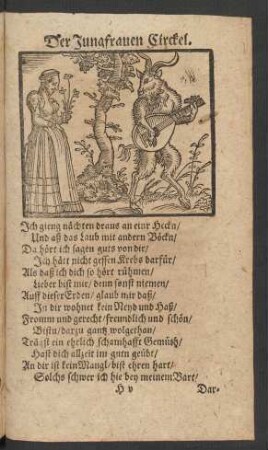 Der Jungfrauen Circkel.
Ich gieng nächten draus an einr Heckn/
Und aß das Laub mit andern Böckn/
Da hört ich sagen guts von dir/
Ich hätt nicht gessen Krebs darfür/
Als daß ich dich so hört rühmen/
Lieber bist mir/ denn sonst niemen/
Auff dieser Erden/ glaub mir daß/
In dir wohnet kein Neyd und Haß/
Fromm und gerecht/ freundlich und schön/
Bistu/ darzu gantz wolgethan/
Trägst ein ehrlich schamhafft Gemüth/
Hast dich allzeit im gutn geübt/
An dir ist kein Mangl/ bist ehren hart/
Solchs schwer ich hie bey meinem Bart/
H v Dar-